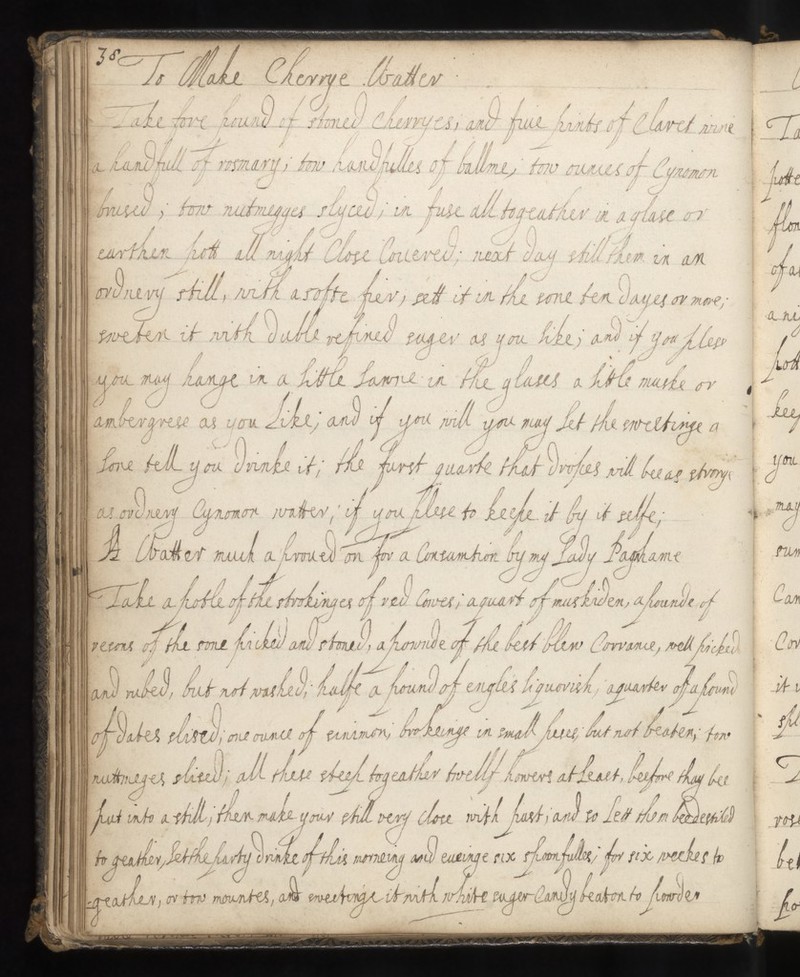 38
To Make Cherrye Watter
Take fore pound of stoned cherryes, and five pints of Claret wine
a handfull of rosmary; tow handfulles of ballme, tow ounces of Cynomon
brused; tow nutmegges slyced; in fuse all togeather in a glase or
earthen pott all night Close Couered; next day still them in an
ordnery still, with a softe fier; sett it in the sone ten dayes or more;
sweten it with duble refined suger as you like; and if you plese
you may hange in a little Lawne in the glases a little muske or
ambergrese as you Like; and if you will you may Let the sweetinge a
Lone tell you drinke it; the furst quarte that dropes will bee as stronge
as ordnery Cynomon watter; if you plese to keepe it by it selfe;
A Watter much aproued on for a Consamtion by my Lady
Take a potle of the strokinges of red Cowes; a quart of muskiden, a pounde of
resons of the sone picked and stoned, a pownde of the best blew Corrance, well picked
and rubed, but not washed; halfe a pound of engles liquorish; a quarter of a pound
of dates slised; one ounce of sinimon; brokeinge in small peces but not beaten; tow
nuttmeges slised; all these steep togeather twellf howers at Least, beefore thay bee
put into a still; then make your still very close with past; and so Lett them bee destilled
to geather, Let the party drinke of this morneing and eueinge six spoonfulles; for six weekes to
geather, or tow mountes, and sweetinge it with white suger Candy beaton to powder
Ta
potte
flon
of a
pott
keep
you
may
sum
Can
Cor
it
rose